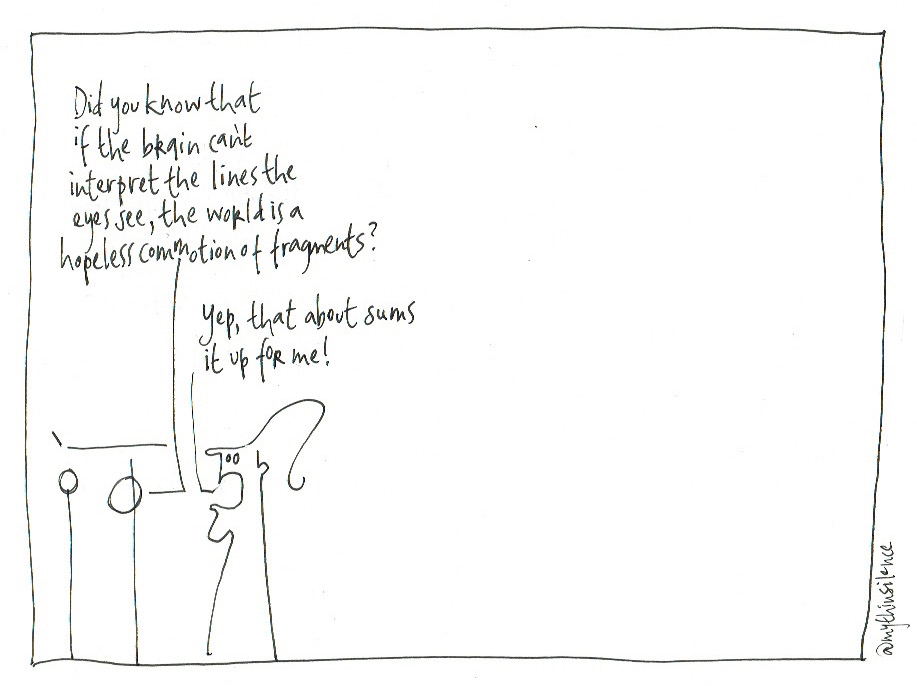 Did you know that
if the brain can't
interpret the lines the
eyes see, the world is a
hopeless commotion of fragments?
Yep, that about sums
it up for me!
@mythinsilence